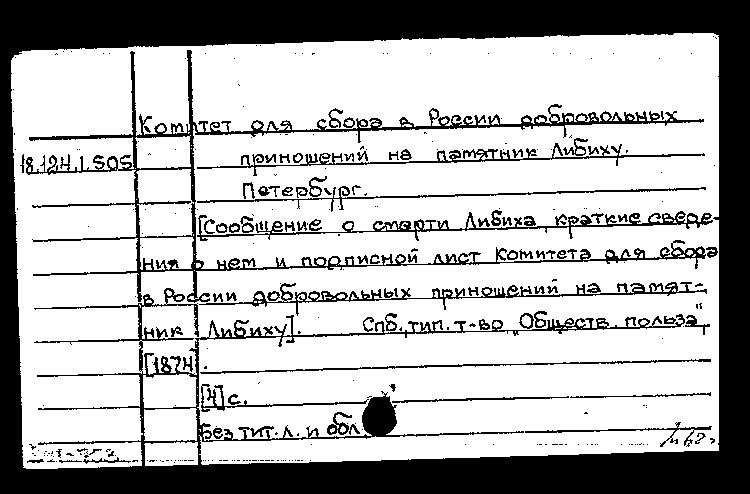 Комитет для сбора в России добровольных
18.124.1.505 приношений на памятник Либиху.
Петербург.
[Сообщение о смерти Либиха, краткие сведе-
ния о нем и подписной лист Комитета для сбора
в России добровольных приношений на памят-
ник Либиху]. Спб., тип. т-во "Обществ. польза",
[1874].
[4] с.
Без тит. л. и обл